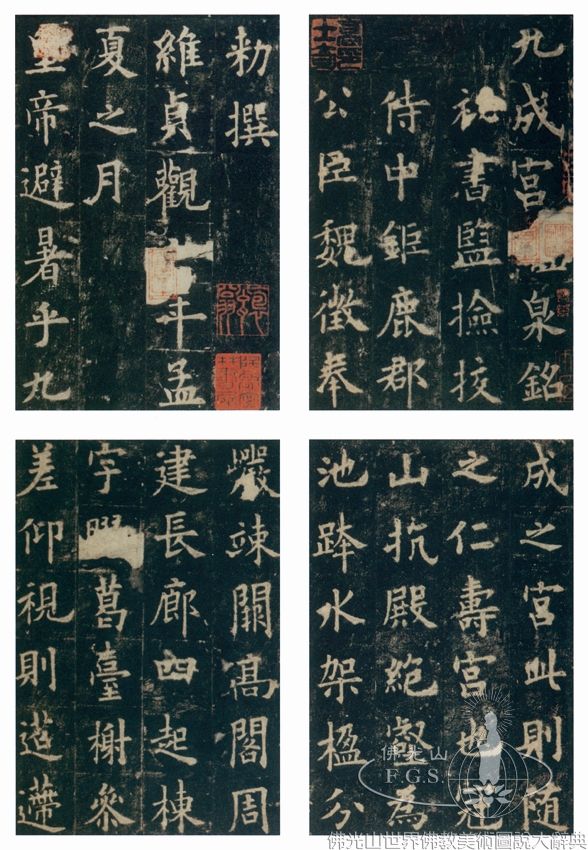 九成宮泉銘
祕書監撿挍
侍中鉅鹿郡
公臣魏徵奉
勑撰
維貞觀年孟
夏之月
皇帝避暑乎九
成之宮此則随
之仁壽宮也冠
山抗殿絕壑為
池跨水架楹分
巖竦闕髙閣周
建長廊四起棟
宇葛臺榭參
差仰視則迢遰
佛光山
FGS
佛光山世界佛教美術圖說大辭典